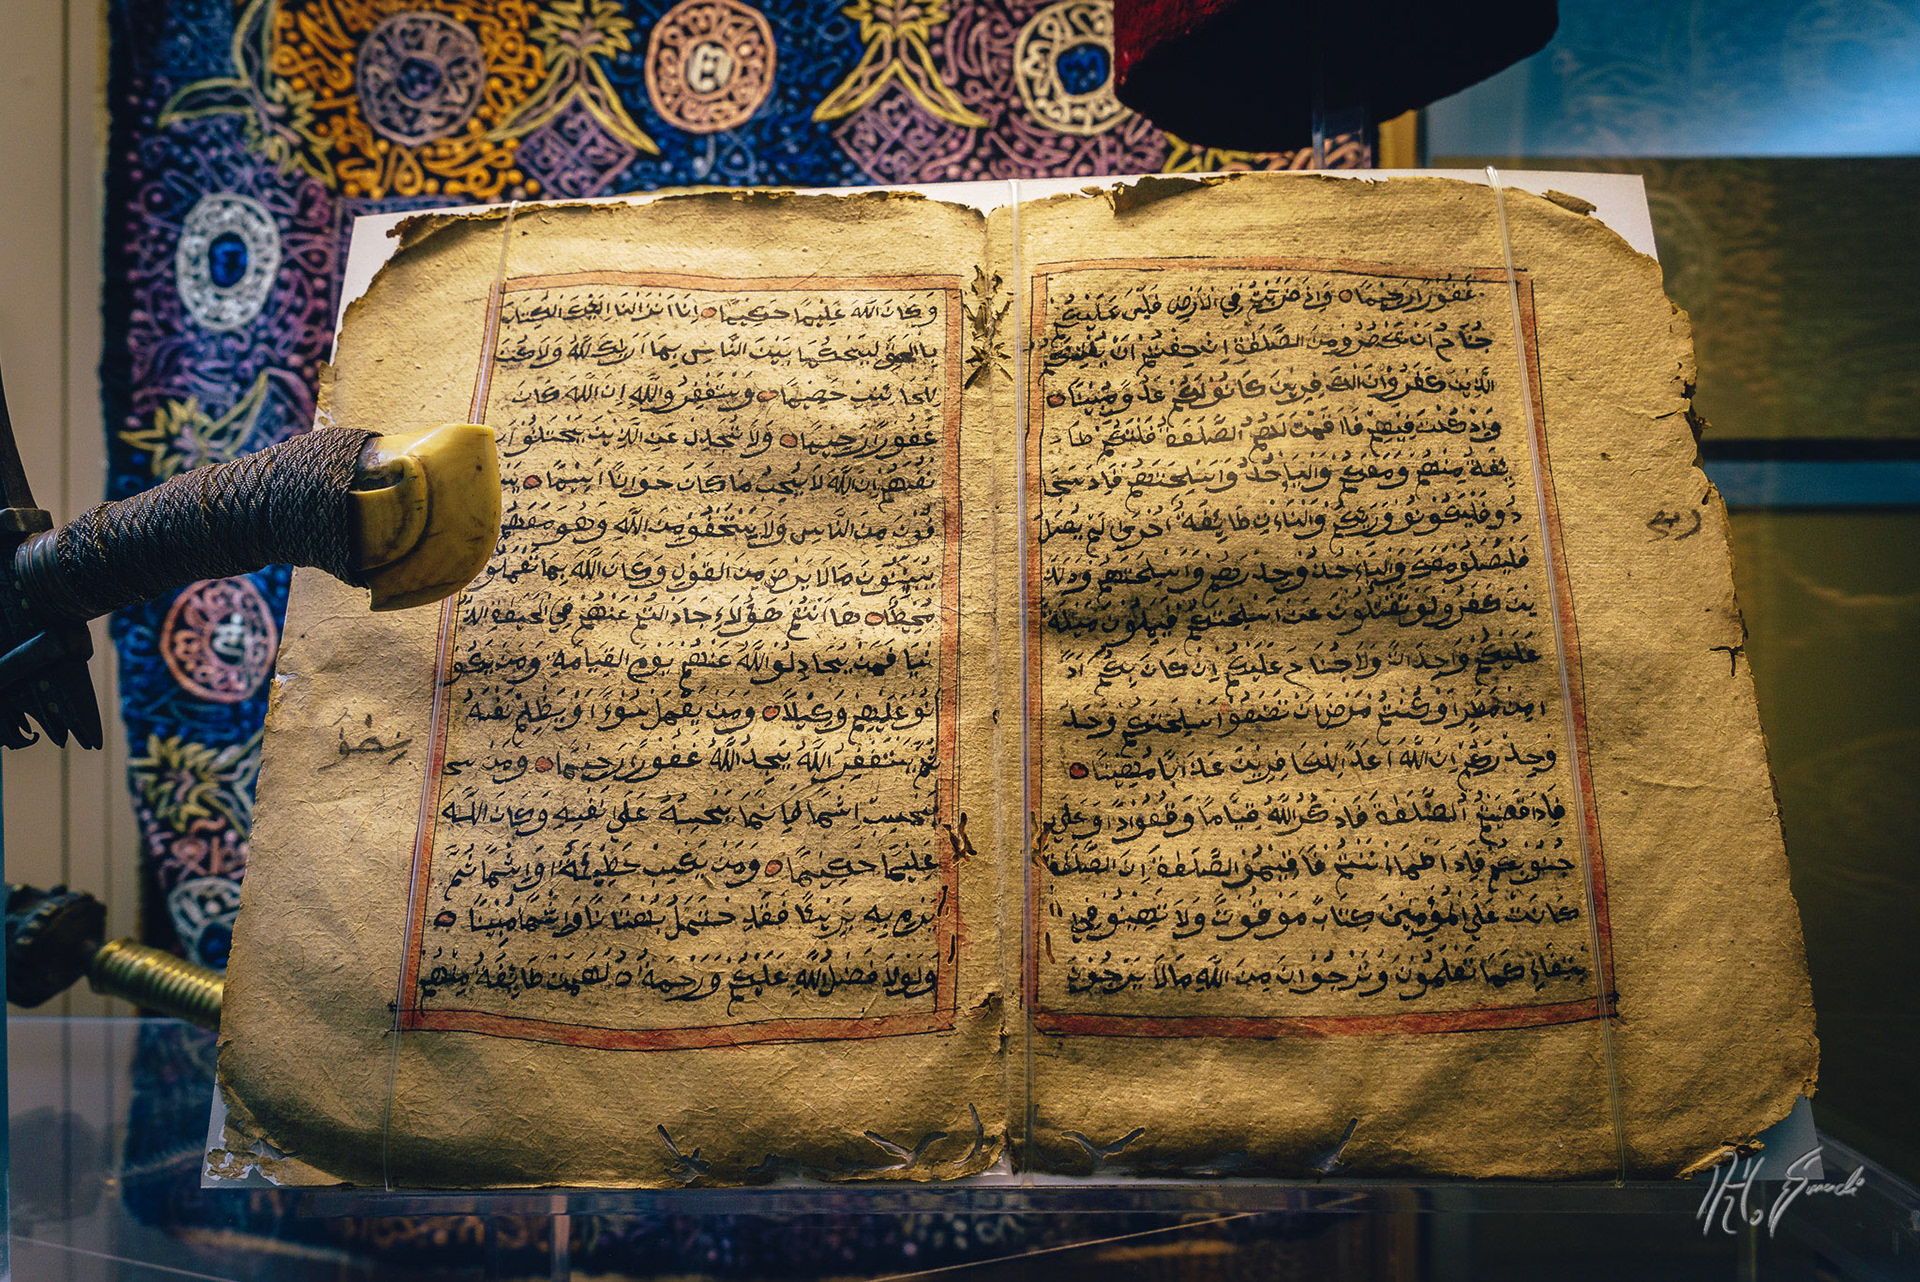 غفورا رحيما واذا ضربتم في الارض فليس عليكم
جناح ان تقصرو من الصلطة ان خفتم ان يفتنكم
الذين كفروا ان الكفرين كانو لكم عدو مبينا
واذ كنت فيهم فاقمت لهم الصلطة فلتقم طا
يفة منهم ومعك وليأخذو اسلحتهم فاذ سجا
دو فليكونو ورئكم والتات طايفة اخرى لم يصل
فليصلو معك وليأخذ وحذرهم واسلحتهم
ين كفرو لو تغفلون عن اسلحتكم فيميلون ميلة
عليكم واحدة ولا جناح عليكم ان كان بكم اذ
ا من مطر او كنتم مرضا ان تضعو اسلحتكم وخذ
وحذركم ان الله اعد للكافرين عذابا مهينا
فاذا قضيتم الصلطة فاذكر الله قياما وقعودا وعلى
جنوبكم فاذا طمأننتم فاقيمو الصلطة ان الصلطة
كانت على المؤمنين كتاب موقوتا ولا تهنو في
بتغاء كما تعلمون وترجون من الله مالا يرجون
وكان الله عليما حكيما انا انزلنا اليك الكتاب
باالحق ليتحكم بين الناس بما اراك الله ولا تكن
للخائنين خصيما ويستغفر والله ان الله كان
غفورا رحيما ولا تجدل عن الذين يختانون
نفسهم ان الله لا يحب ما كان خوانا اثيما
فون من الناس ولا يستخفو من الله وهو معهم
يبيتون مالا يرض من القول وكان الله بما تعملو
محيطا ها انتم هؤلاء جادالتم عنهم في الحيوة الد
نيا فمن يجادلو الله عنهم يوم القيامة ومن يكو
نو عليهم وكيلا ومن يعمل سوءا او يظلم نفسه
ثم يستغفر الله يجد الله غفورا رحيما ومن
يكسب اثما فانما يكسبه على نفسه وكان الله
عليما حكيما ومن يكسب خطيئة او اثما ثم
يرم به بريئا فقد حتمل بهتانا واثما مبينا
ولولا فضل الله عليكم ورحمة لهمت طايفة منهم